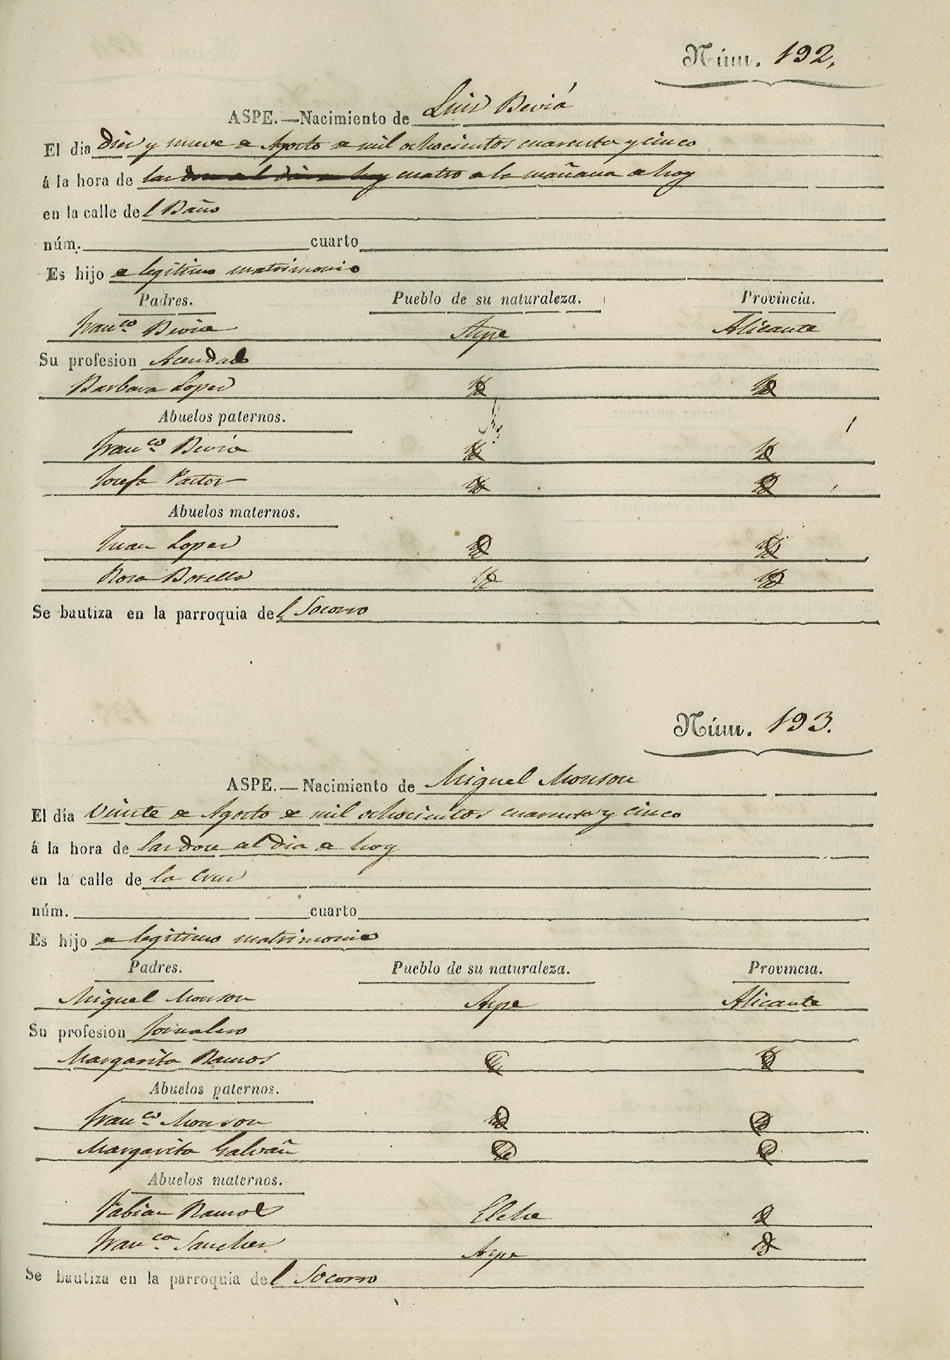 Núm. 192.
ASPE.—Nacimiento de Luis Beviá
El dia diez y nueve de Agosto de mil ochocientos cuarenta y cinco
á la hora de las doce del dia de hoy cuatro de la mañana de hoy
en la calle del Baño
núm. cuarto
Es hijo de legitimo matrimonio
Padres. Pueblo de su naturaleza. Provincia.
Franco Bevia Aspe Alicante
Su profesion
Barbara Lopez
Abuelos paternos.
Franco Bevia
Josefa Pastor
Abuelos maternos.
Juan Lopez
Rosa Botella
Se bautiza en la parroquia del Socorro
Núm. 193.
ASPE.—Nacimiento de Miguel Monson
El día Veinte de Agosto de mil ochocientos cuarenta y cinco
á la hora de las doce del dia de hoy
en la calle de la Cruz
núm. cuarto
Es hijo de legitimo matrimonio
Padres. Pueblo de su naturaleza. Provincia.
Miguel Monson Aspe Alicante
Su profesion Jornalero
Margarita Ramos
Abuelos paternos.
Franco Monson
Margarita Galvañ
Abuelos maternos.
Fabian Ramos Elche
Franca Sanchez Aspe
Se bautiza en la parroquia del Socorro